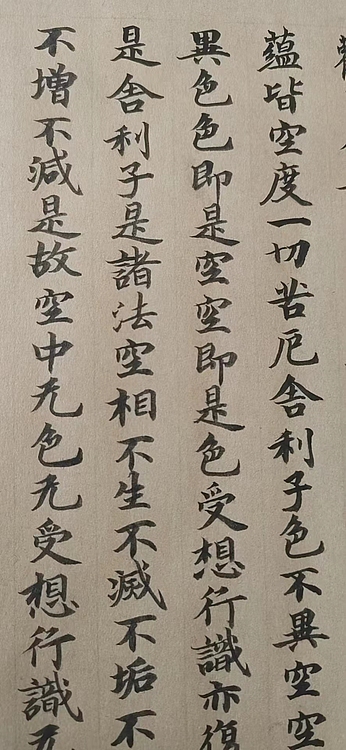 蕴皆空度一切苦厄舍利子色不異空空
異色色即是空空即是色受想行識亦復
是舍利子是諸法空相不生不滅不垢不
不增不減是故空中无色无受想行識无